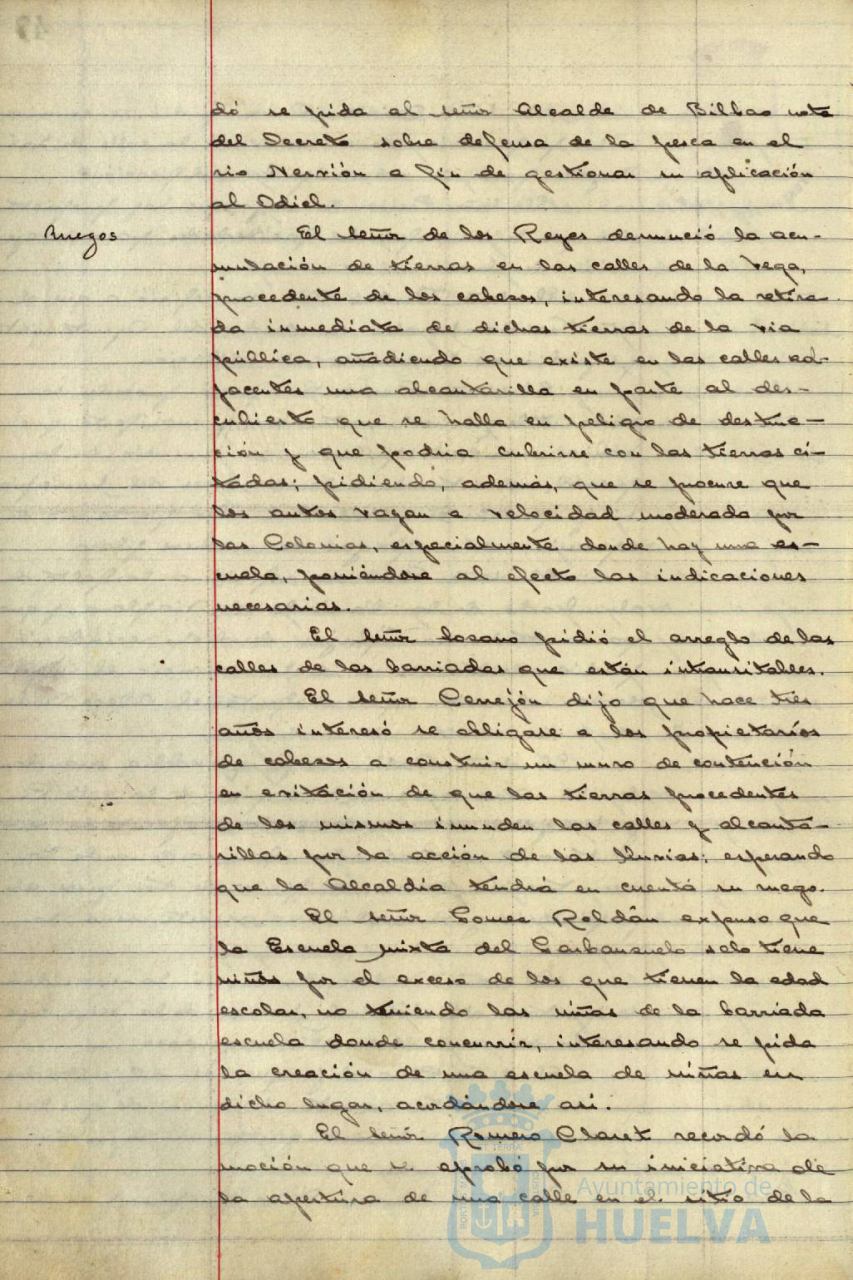 dó se pida al señor Alcalde de Bilbao nota
del Decreto sobre defensa de la pesca en el
rio Nervión a fin de gestionar su aplicación
al Odiel.
Ruegos
El señor de los Reyes denunció la acu-
mulación de tierras en las calles de la Vega,
procedente de los cabesos, interesando la retira-
da inmediata de dichas tierras de la via
pública, añadiendo que existe en las calles ad-
yacentes una alcantarilla en parte al des-
cubierto que se halla en peligro de destruc-
ción y que podria cubrirse con las tierras ci-
tadas; pidiendo, además, que se procure que
los autos vayan a velocidad moderada por
las Colonias, especialmente donde hay una es-
cuela, poniéndose al efecto las indicaciones
necesarias.
El señor Losano pidió el arreglo de las
calles de las barriadas que están intransitables.
El señor Cerrejón dijo que hace tres
años interesó se obligase a los propietarios
de cabesos a construir un muro de contención
en evitación de que las tierras procedentes
de los mismos inunden las calles y alcanta-
rillas por la acción de las lluvias; esperando
que la Alcaldia tendrá en cuenta su ruego.
El señor Gomez Roldán expuso que
la Escuela mixta del Garbanzuelo solo tiene
niños por el exceso de los que tienen la edad
escolar, no teniendo las niñas de la barriada
escuela donde concurrir, interesando se pida
la creación de una escuela de niñas en
dicho lugar, acordándose asi.
El señor Romero Claret recordó la
moción que se aprobó por su iniciativa de
la apertura de una calle en el sitio de la
Ayuntamiento de
HUELVA